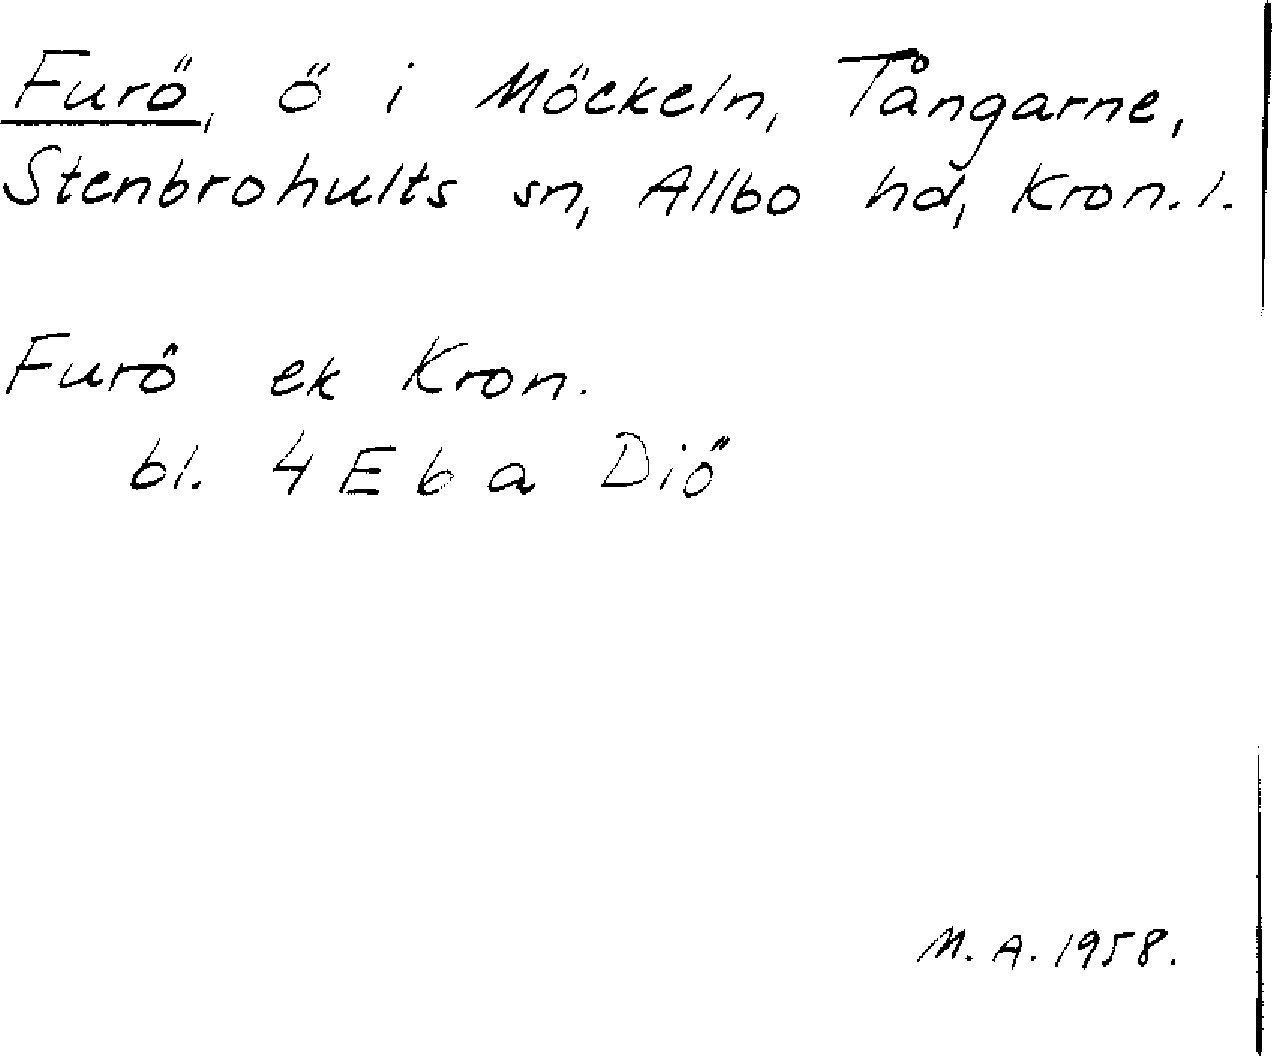 Furö, ö i Möckeln, Tångarne,
Stenbrohults sn, Allbo hd, Kron. l.
Furö ek Kron.
bl. 4 E 6 a Diö
M. A. 1958.